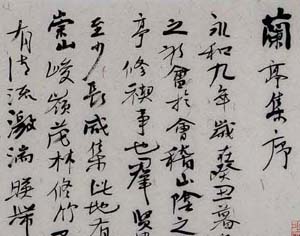 蘭亭集序
永和九年歲在癸丑暮
之初會於會稽山陰之
亭修禊事也羣賢
至少長咸集此地有
崇山峻嶺茂林修竹
有清流激湍暎帶